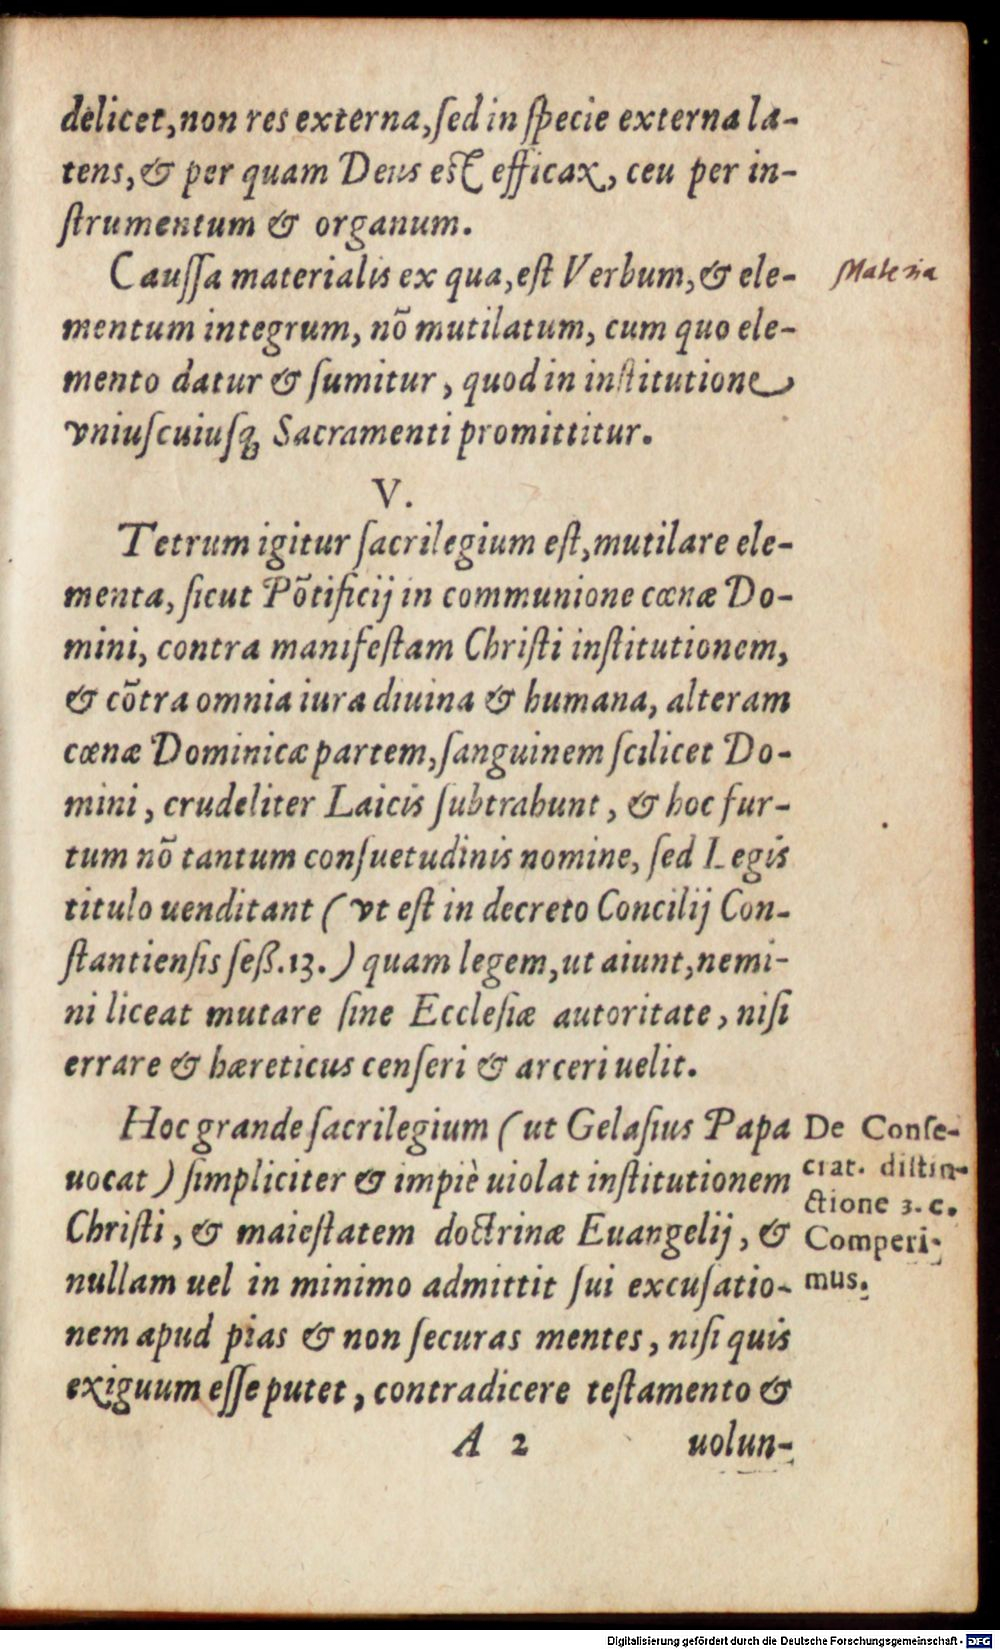 delicet, non res externa, ſed in ſpecie externa la-
tens, & per quam Deus eſt efficax, ceu per in-
ſtrumentum & organum.
Cauſſa materialis ex qua, eſt Verbum, & ele-
Materia
mentum integrum, nõ mutilatum, cum quo ele-
mento datur & ſumitur, quod in inſtitutione
vniuſcuiuſq; Sacramenti promittitur.
V.
Tetrum igitur ſacrilegium eſt, mutilare ele-
menta, ſicut Põtificij in communione cœnæ Do-
mini, contra manifeſtam Chriſti inſtitutionem,
& cõtra omnia iura diuina & humana, alteram
cœnæ Dominicæ partem, ſanguinem ſcilicet Do-
mini, crudeliter Laicis ſubtrahunt, & hoc fur-
tum nõ tantum conſuetudinis nomine, ſed Legis
titulo uenditant (vt eſt in decreto Concilij Con-
ſtantienſis ſeß. 13.) quam legem, ut aiunt, nemi-
ni liceat mutare ſine Eccleſiæ autoritate, niſi
errare & hæreticus cenſeri & arceri uelit.
Hoc grande ſacrilegium (ut Gelaſius Papa
uocat) ſimpliciter & impiè uiolat inſtitutionem
Chriſti, & maieſtatem doctrinæ Euangelij, &
nullam uel in minimo admittit ſui excuſatio-
nem apud pias & non ſecuras mentes, niſi quis
exiguum eſſe putet, contradicere teſtamento &
De Conſe-
crat. diſtin-
ctione 3. c.
Comperi-
mus.
A 2 uolun-
Digitalisierung gefördert durch die Deutsche Forschungsgemeinschaft - DFG